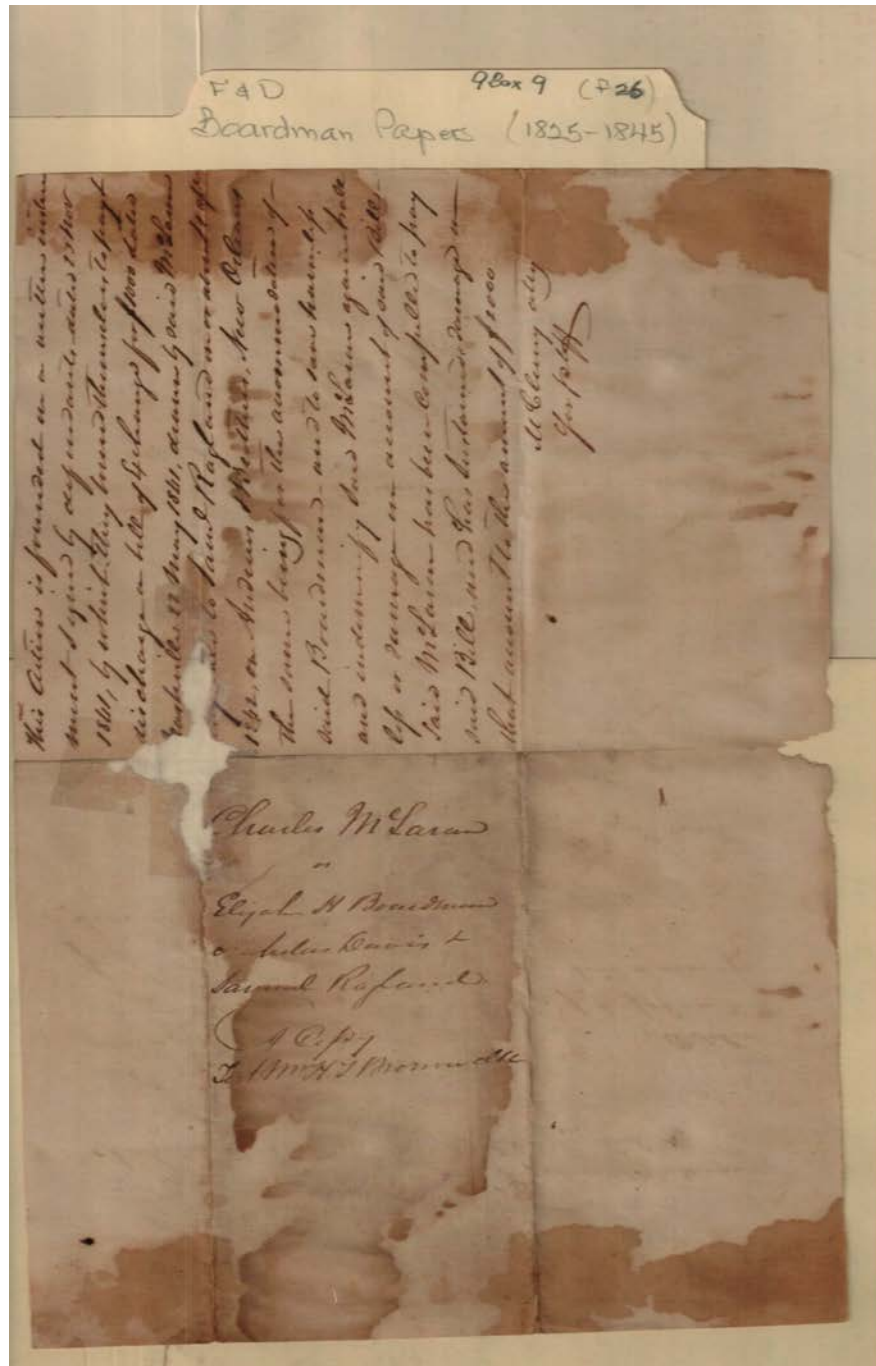 F & D 9 Box 9 (F 26)
Boardman Papers (1825-1845)
This Action is founded on a written
ment signed by defendants dated 17 Nov
1841, by which they bound themselves to pay &
discharge a bill of Exchange for $1000 dated
22 May 1841, drawn by said McLaran
to Saml Ragland
1842, on Andrews & Brothers, New Orleans
the same being for the accommodation of
said Boardman and to save harmless
and indemnify said McLaran against all
loss or damage on account of said Bill,
said McLaran has been compelled to pay
said Bill, and has sustained damage on
that account to the amount of $2000
McClung atty
for plff
Charles McLaran
vs
Elijah H Boardman
Davis &
Samuel Ragland
A Copy
Test Wm H Brown clk